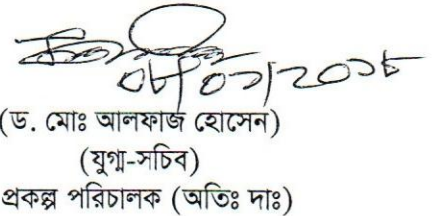 ০৮/০১/২০১৮
(ড. মোঃ আলফাজ হোসেন)
(যুগ্ম-সচিব)
প্রকল্প পরিচালক (অতিঃ দাঃ)